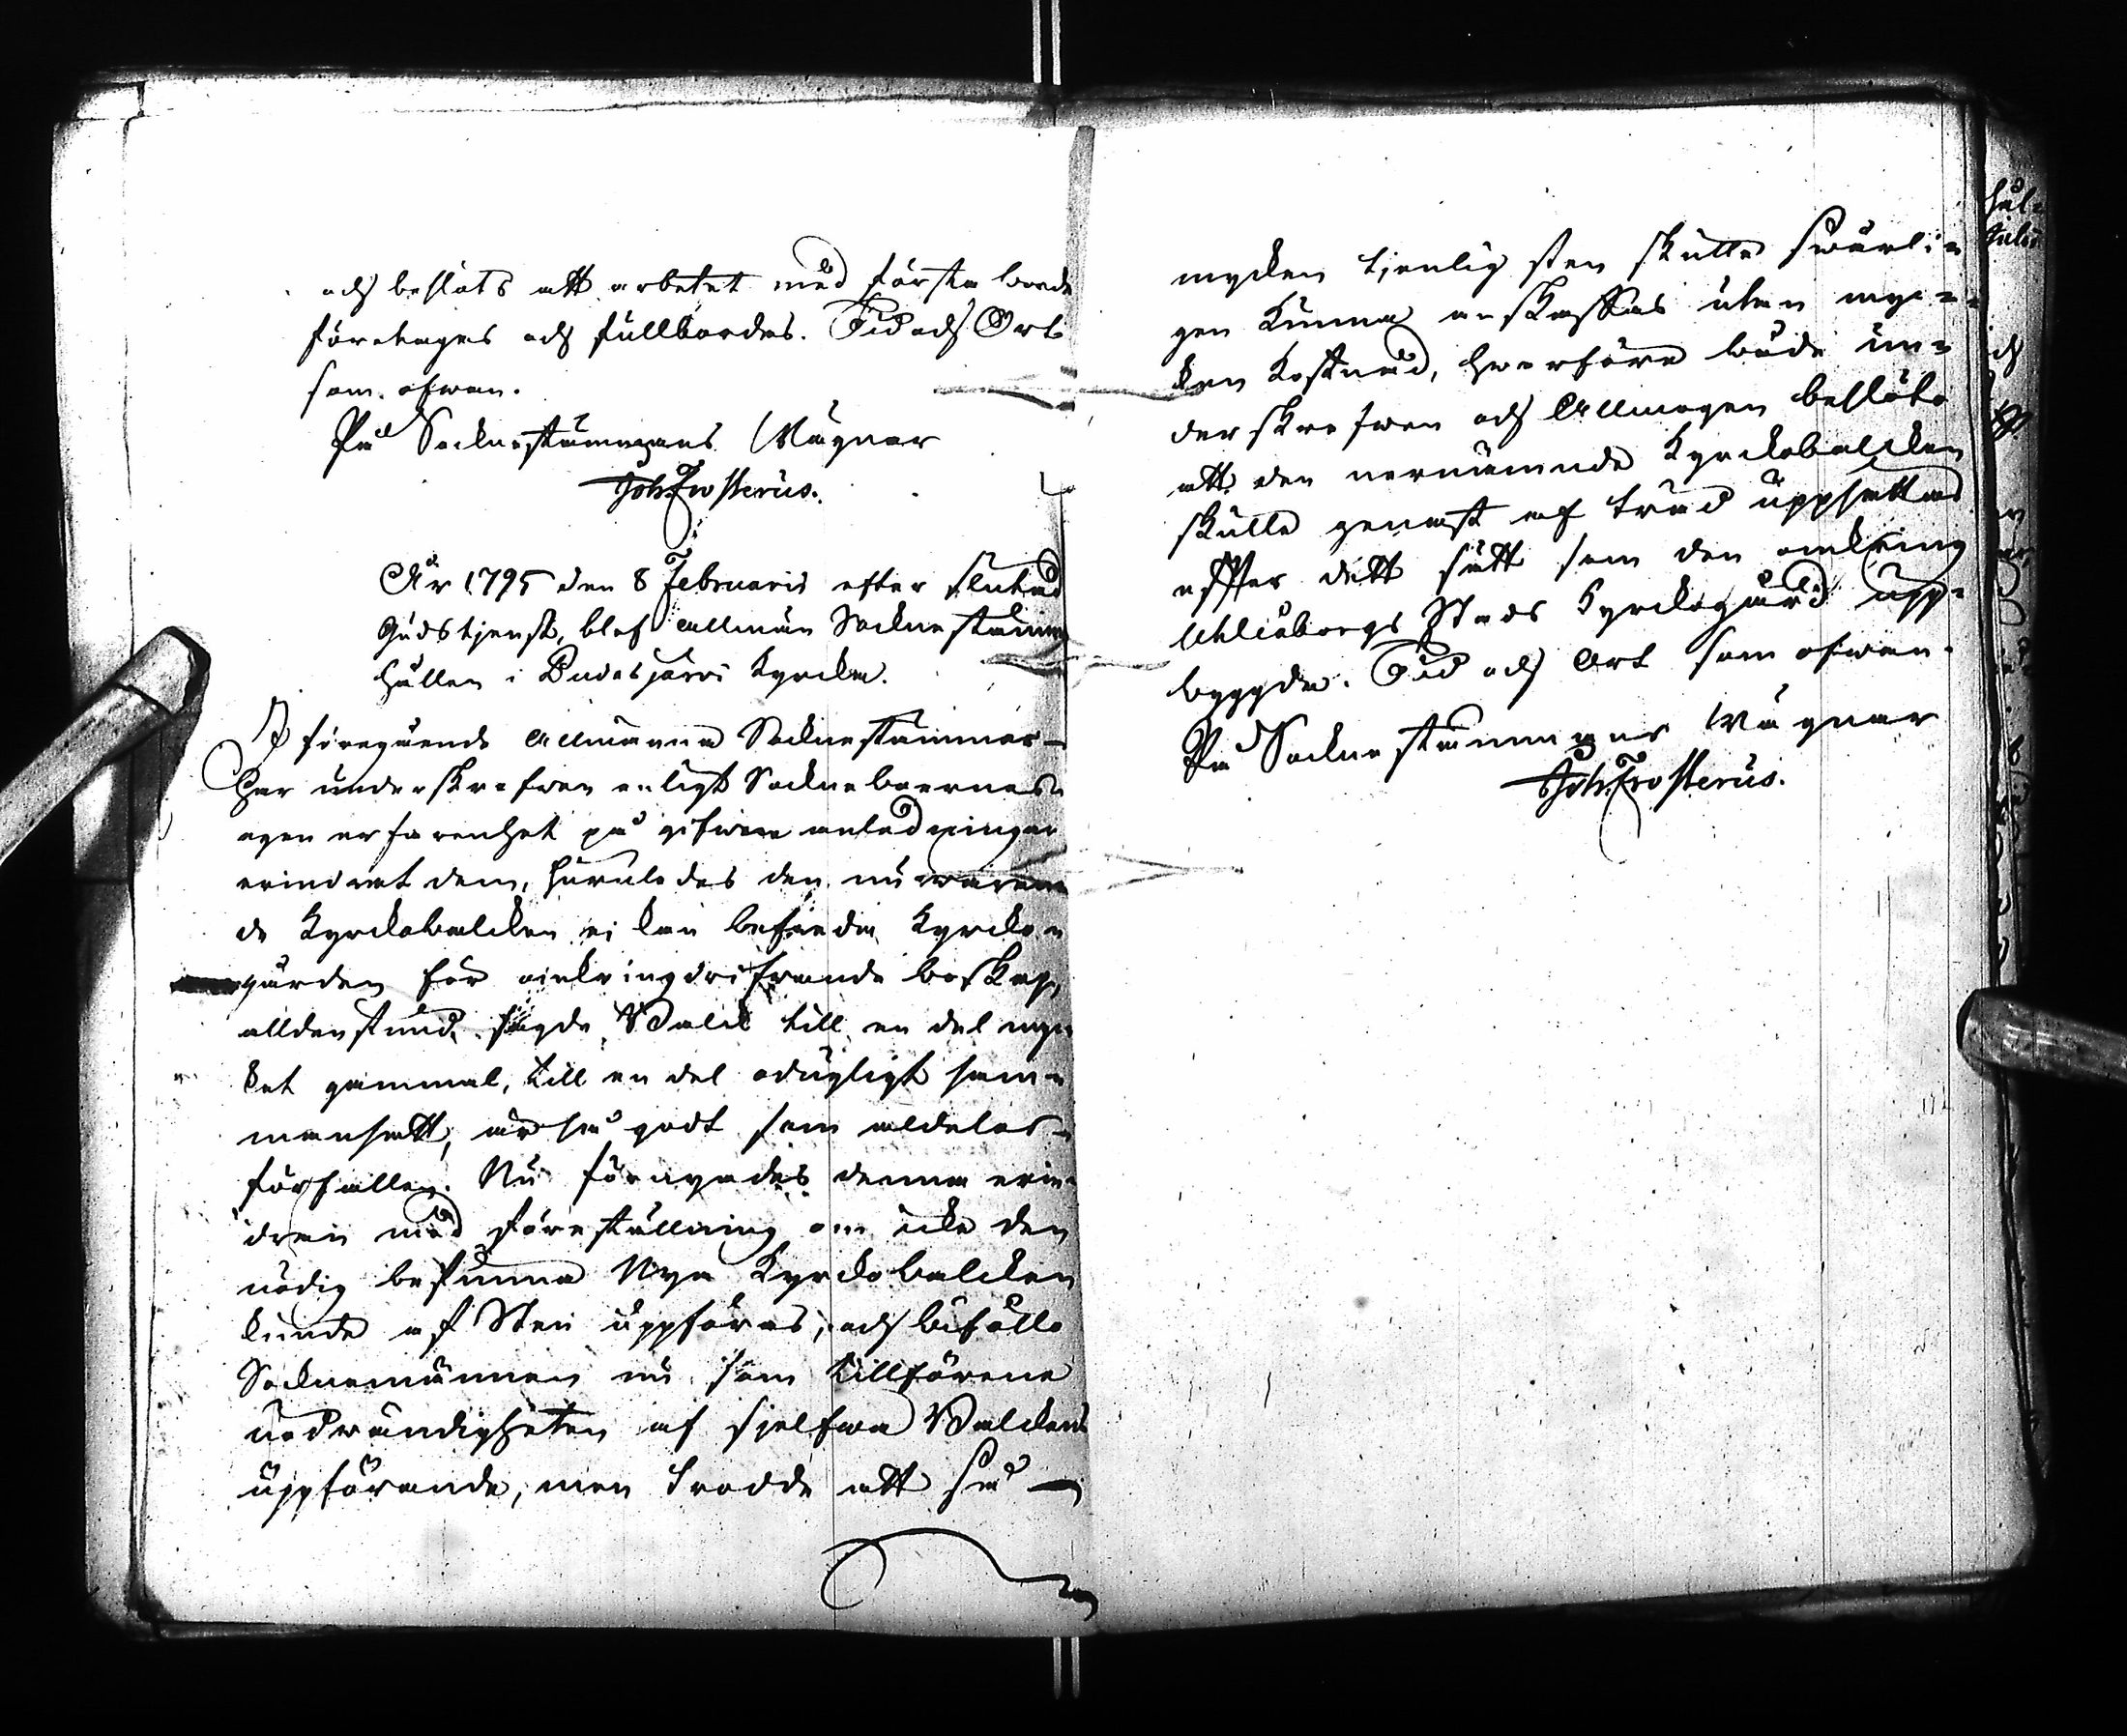 och beslöts att arbetet med första borde
företages och fullbordas. Tid och Ort
som ofwan.
På Socknestämmans Wägnar
Joh. Frosterus.
År 1795 den 8 Februarii efter slutad
Gudstjenst, blef allmän Socknestämma
hållen i Pudasjärvi Kyrcka.
I föregående Allmänna Socknestämmor
har underskrefwen enligt Sockneboernas
egen erfarenhet på gifwen anledningar
erindrat dem, huruledes den nuwaran
de Kyrckobalcken ej kan befreda Kyrcko=
gården för omkringdrifwande boskap,
alldenstund sagde Balk till en del myc
ket gammal, till en del odugligt sam=
mansatt, är så godt som aldeles
förfallen. Nu förnyades denna erin=
dran med föreställning om icke den
nödig befunna Nya Kyrckobalcken
kunde af Sten uppföras; och biföllo
Socknemännen nu som tillförene
nödwändigheten af sjelfwa Balckens
uppförande, men trodde att så
mycken tjenlig sten skulle swårli=
gen kunna anskaffas utan myc=
ken kostnad, hwarföre både un=
derskrefwen och Allmogen beslöto
att den nernämnde Kyrckobalcken
skulle genast af träd uppsättas
efter dett sätt som den omkring
Uhleåborgs Stads Kyrckogård upp=
byggde. Tid och Ort som ofwan.
På Socknestämmans Wägnar
Joh. Frosterus.